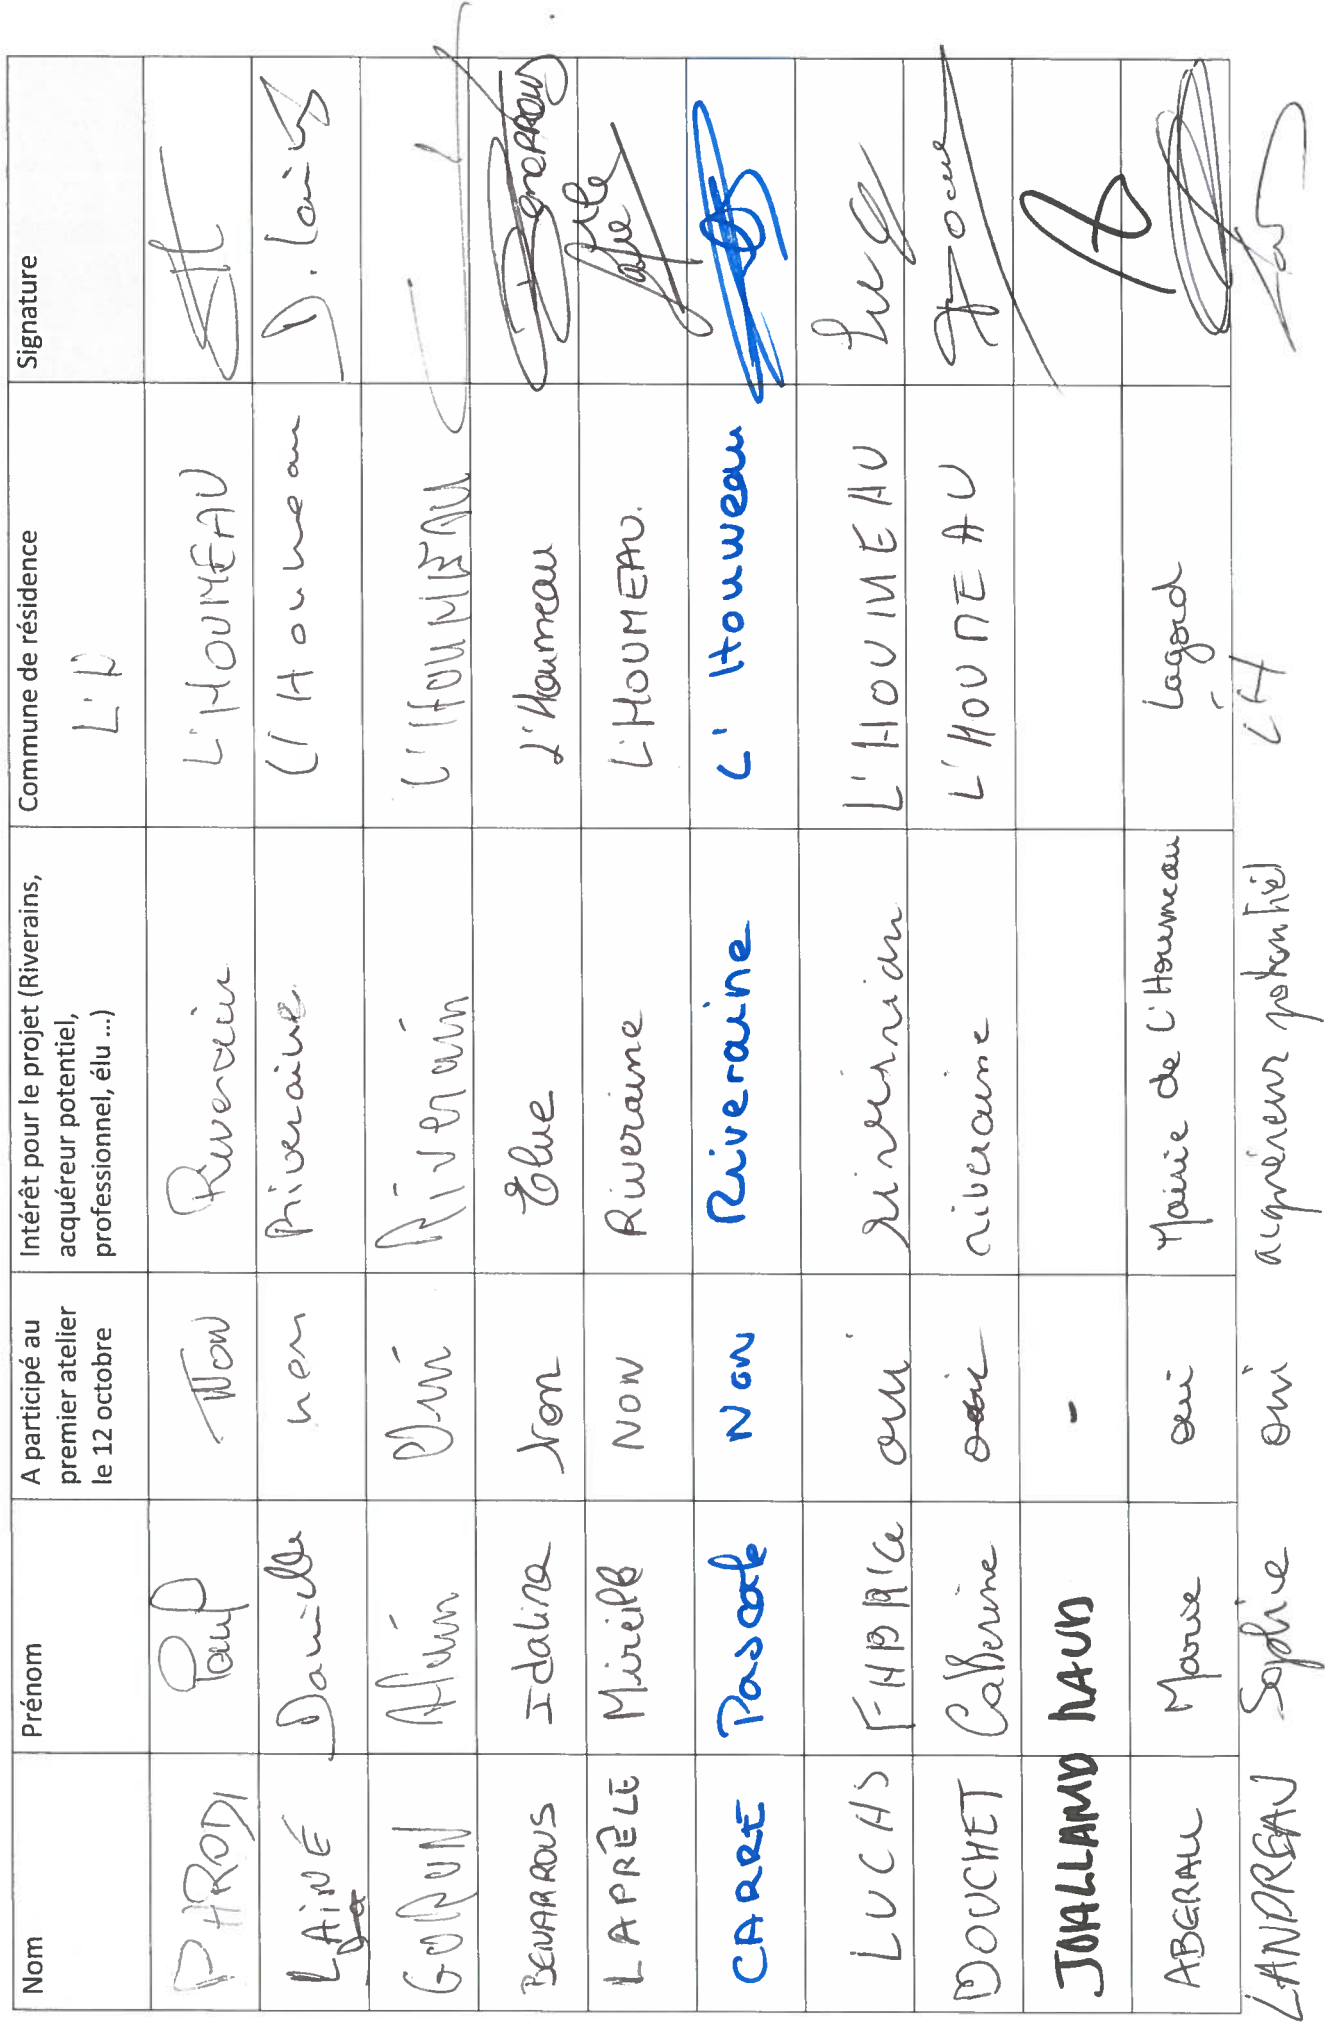 Nom Prénom A participé au premier atelier le 12 octobre Intérêt pour le projet (Riverains, acquéreur potentiel, professionnel, élu ...) Commune de résidence Signature
L'H
PARODI Paul Non Riverain L'HOUMEAU
LAINÉ Danielle non Riveraine L'Houmeau D. Lainé
GORON Alain Oui Riverain L'HOUMEAU
BENARROUS Idalina Non Elue L'Houmeau BENARROUS
LAPRÈLE Mireille NON Riveraine L'HOUMEAU.
CARRE Pascale Non Riveraine L'Houmeau
LUCAS FABRICE oui L'HOUMEAU Luc
BOUCHET Catherine oui riveraine L'HOUMEAU
JOALLAND MAUD -
ABERALL Marie oui Mairie de L'Houmeau Lagord
LANDREAU Sophie oui acquéreur potentiel L'H